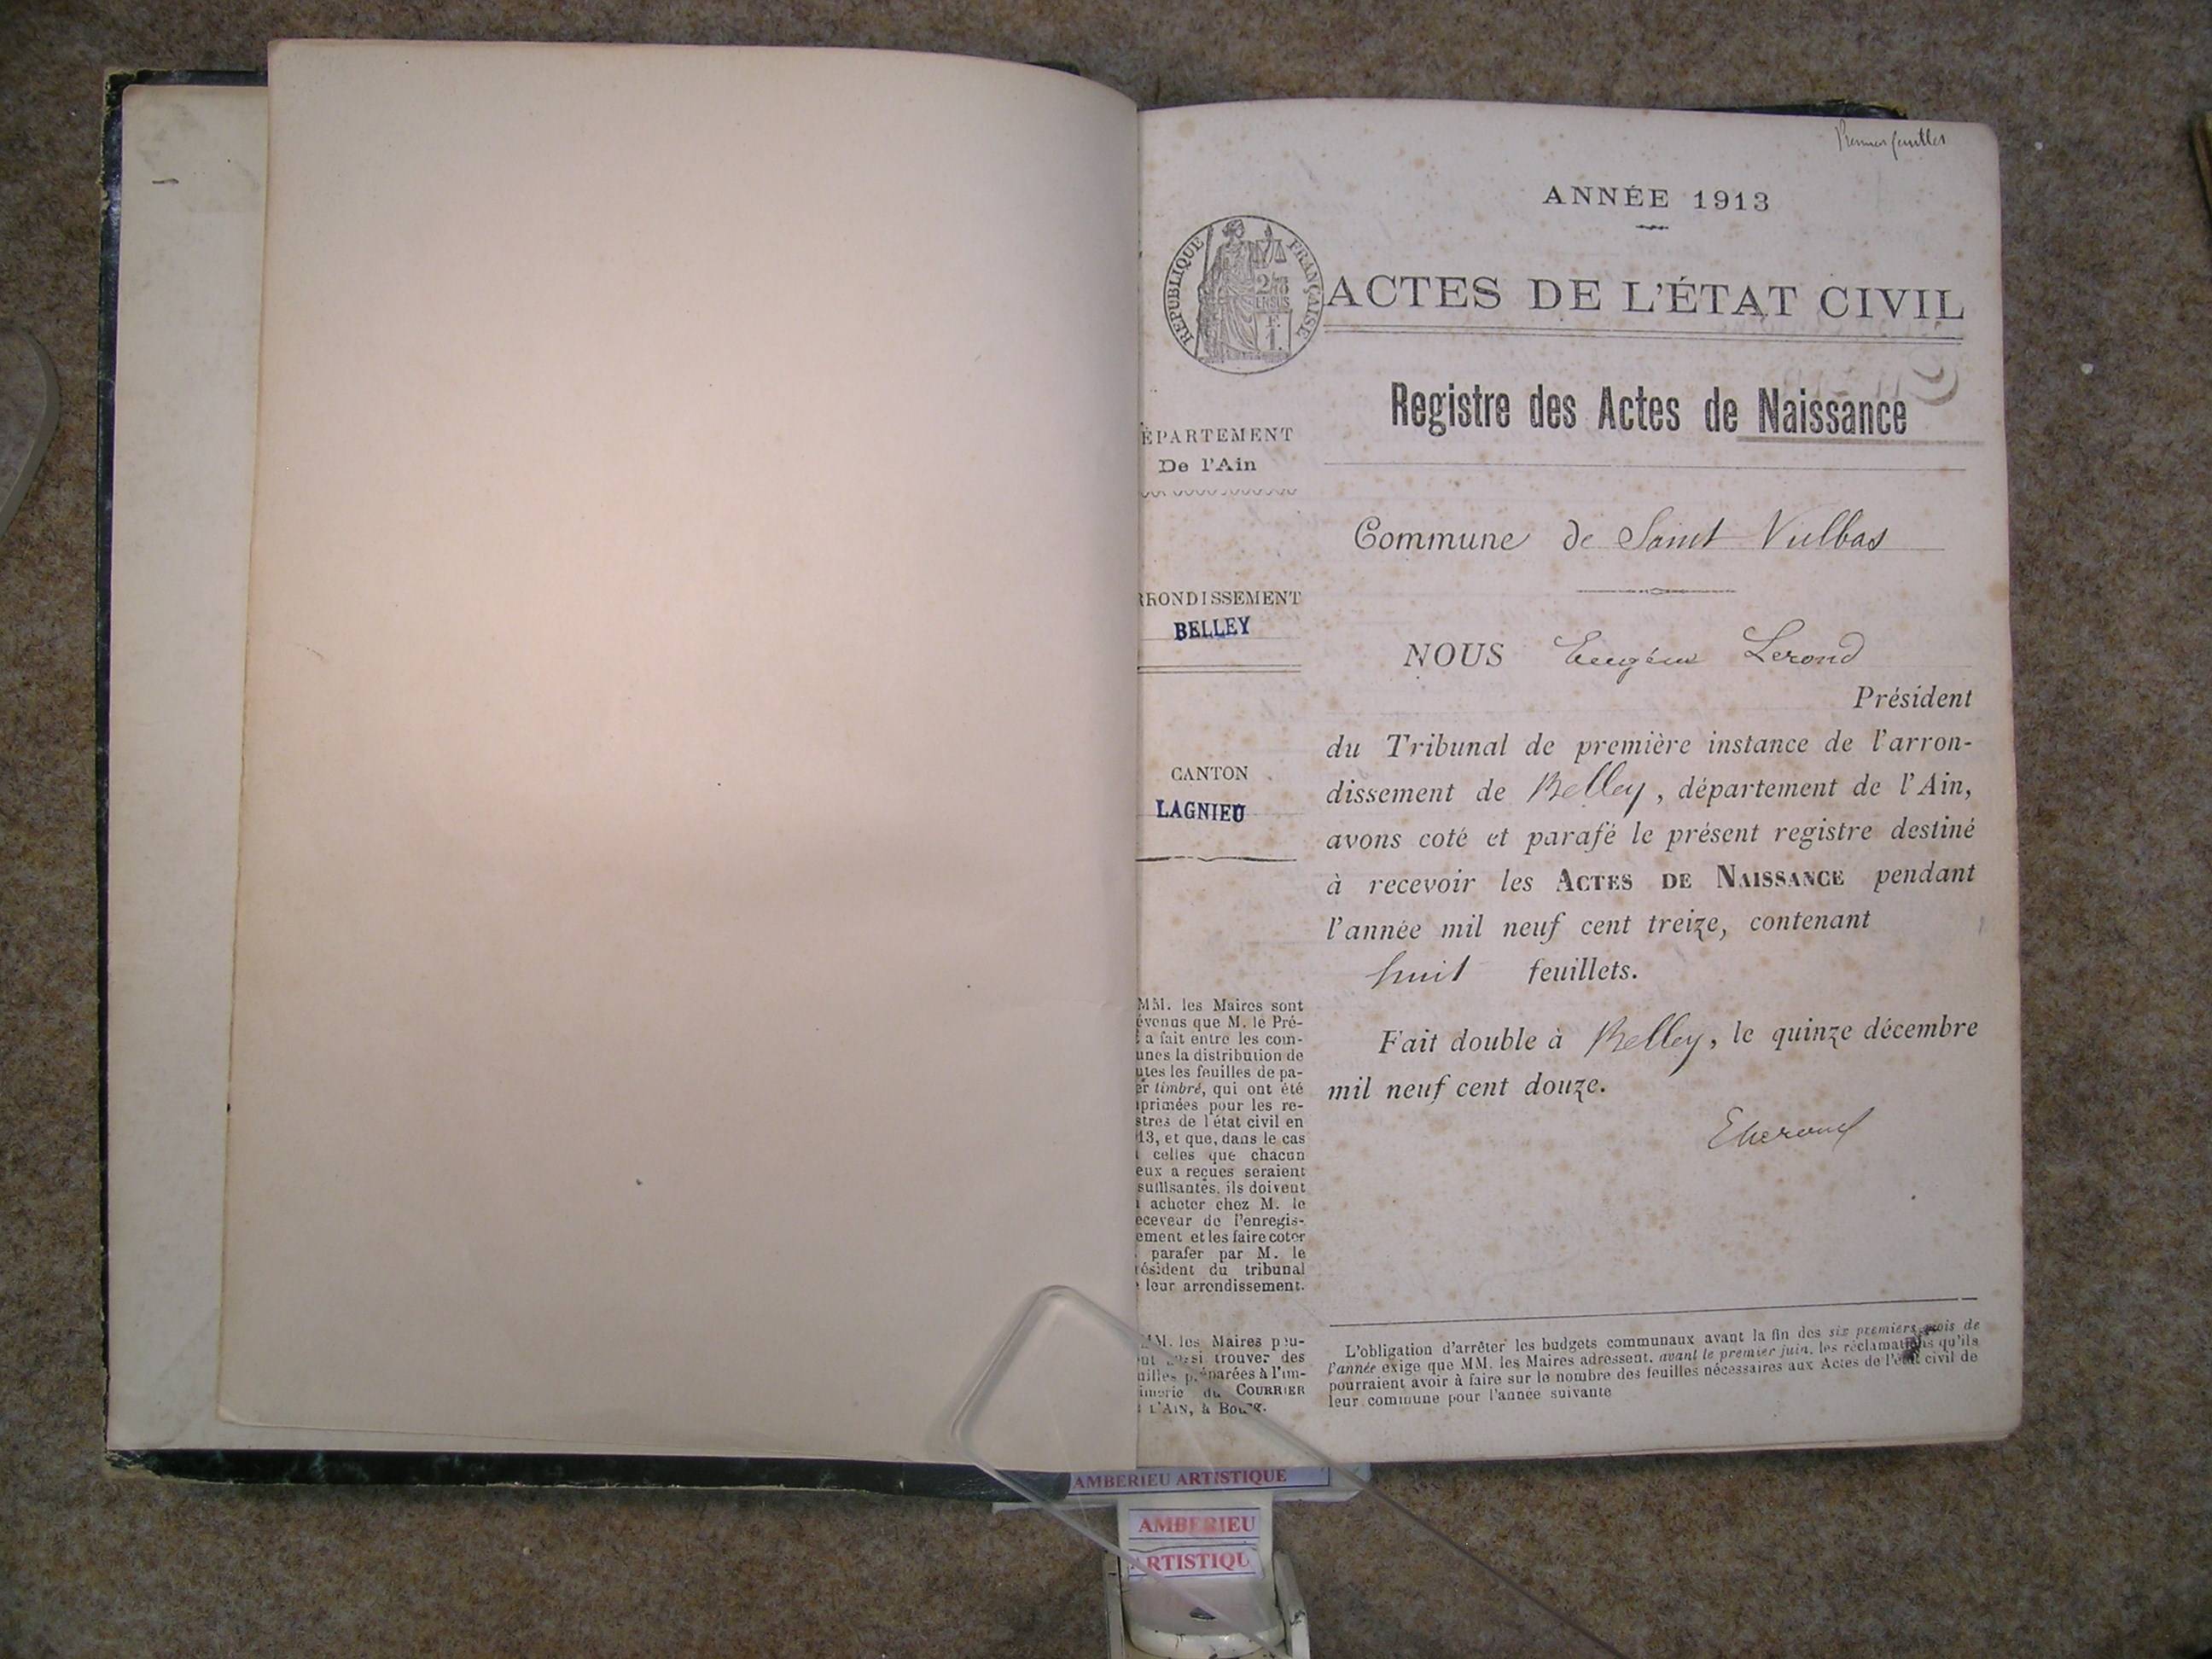 Premier feuillet
ANNÉE 1913
RÉPUBLIQUE FRANÇAISE
ACTES DE L'ÉTAT CIVIL
Registre des Actes de Naissance
ÉPARTEMENT
De l'Ain
Commune de Saint Vulbas
RRONDISSEMENT
BELLEY
NOUS Eugène Lerond
Président
du Tribunal de première instance de l'arron-
dissement de Belley, département de l'Ain,
avons coté et parafé le présent registre destiné
à recevoir les ACTES DE NAISSANCE pendant
l'année mil neuf cent treize, contenant
huit feuillets.
Fait double à Belley, le quinze décembre
mil neuf cent douze.
ELerond
CANTON
LAGNIEU
MM. les Maires sont
évenus que M. le Pré-
t a fait entre les com-
unes la distribution de
utes les feuilles de pa-
er timbré, qui ont été
primées pour les re-
stres de l'état civil en
13, et que, dans le cas
celles que chacun
eux a reçues seraient
suffisantes, ils doivent
acheter chez M. le
eceveur de l'enregis-
ement et les faire coter
parafer par M. le
résident du tribunal
e leur arrondissement.
MM. les Maires peu-
nt aussi trouver des
uilles préparées à l'im-
imerie du COURRIER
L'AIN, à Bourg.
L'obligation d'arrêter les budgets communaux avant la fin des six premiers mois de
l'année exige que MM. les Maires adressent, avant le premier juin, les réclamations qu'ils
pourraient avoir à faire sur le nombre des feuilles nécessaires aux Actes de l'état civil de
leur commune pour l'année suivante
AMBERIEU ARTISTIQUE
AMBERIEU
ARTISTIQU